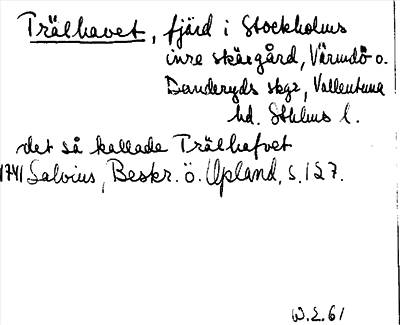 Trälhavet, fjärd i Stockholms
inre skärgård, Värmdö o.
Danderyds skgr, Vallentuna
hd. Sthlms l.
det så kallade Trälhafvet
1741 Salvius, Beskr. ö. Upland, s. 127.
W.E. 61